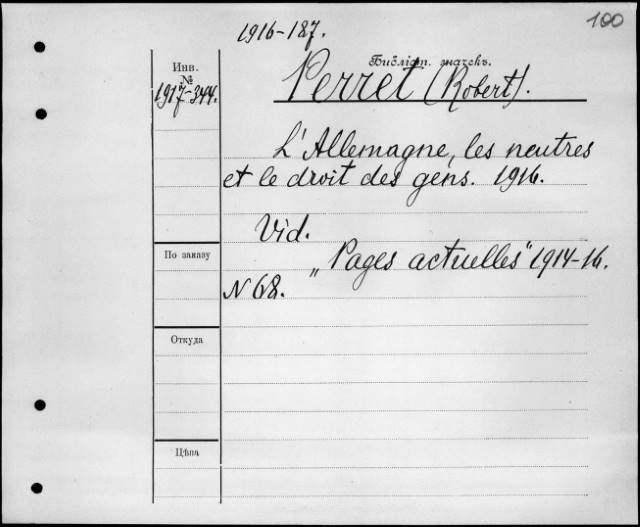 100
1916-187.
Инв.
№
1917-344.
Библіот. значекъ.
Perret (Robert).
L'Allemagne, les neutres
et le droit des gens. 1916.
Vid.
„Pages actuelles" 1914-16.
N 68.
По заказу
Откуда
Цѣна